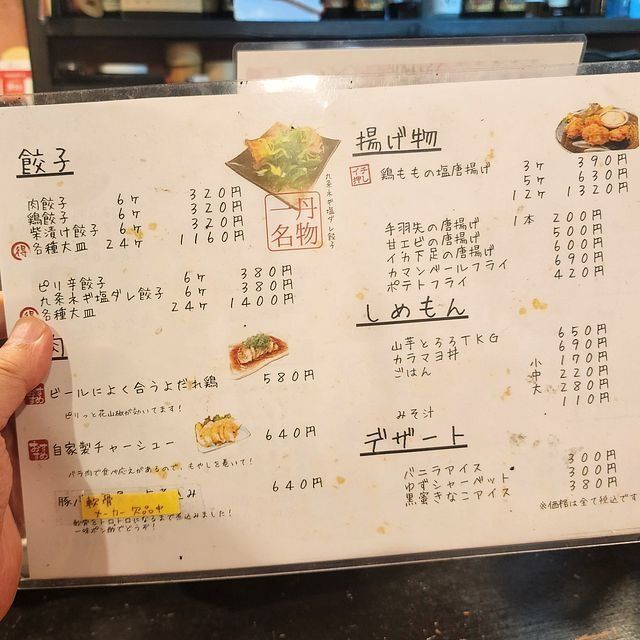 餃子
肉餃子 6ヶ 320円
鶏餃子 6ヶ 320円
柴漬け餃子 6ヶ 320円
得 各種大皿 24ヶ 1160円
ピリ辛餃子 6ヶ 380円
九条ネギ塩ダレ餃子 6ヶ 380円
得 各種大皿 24ヶ 1400円
九条ネギ塩ダレ餃子
一丹
名物
肉
ビールによく合うよだれ鶏 580円
ピリっと花山椒が効いてます!
自家製チャーシュー 640円
バラ肉で食べ応えがあるので、もやしを巻いて!
豚 込み 640円
軟骨
メーカー欠品中
軟骨をトロトロになるまで煮込みました!
一味ポン酢でどうぞ!
揚げ物
イチ押し 鶏ももの塩唐揚げ 3ヶ 390円
5ヶ 630円
12ヶ 1320円
手羽先の唐揚げ 1本 200円
甘エビの唐揚げ 500円
イカ下足の唐揚げ 600円
カマンベールフライ 690円
ポテトフライ 420円
しめもん
山芋とろろTKG 650円
カラマヨ丼 690円
ごはん 小 170円
中 220円
大 280円
みそ汁 110円
デザート
バニラアイス 300円
ゆずシャーベット 300円
黒蜜きなこアイス 380円
※価格は全て税込です